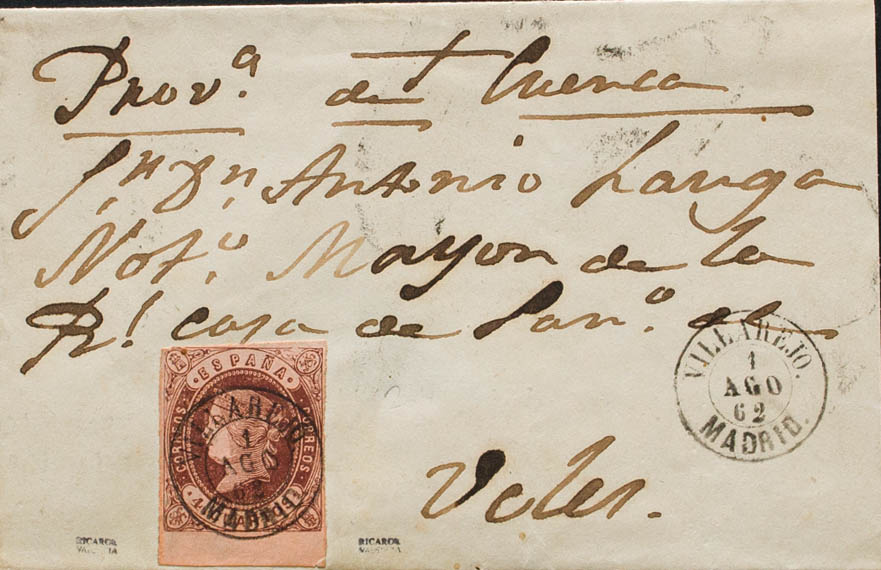 Provª. de Cuenca
Sⁿ. Dⁿ. Antonio Langa
Notº. Mayor de la
Rl. casa de Sanº. de
Veles.
VILLAREJO.
1
AGO
62
MADRID.
ESPAÑA
CORREOS
CORREOS
VILLAREJO
1
AGO
62
MADRID
RICARDR
VALENCIA
RICARDR